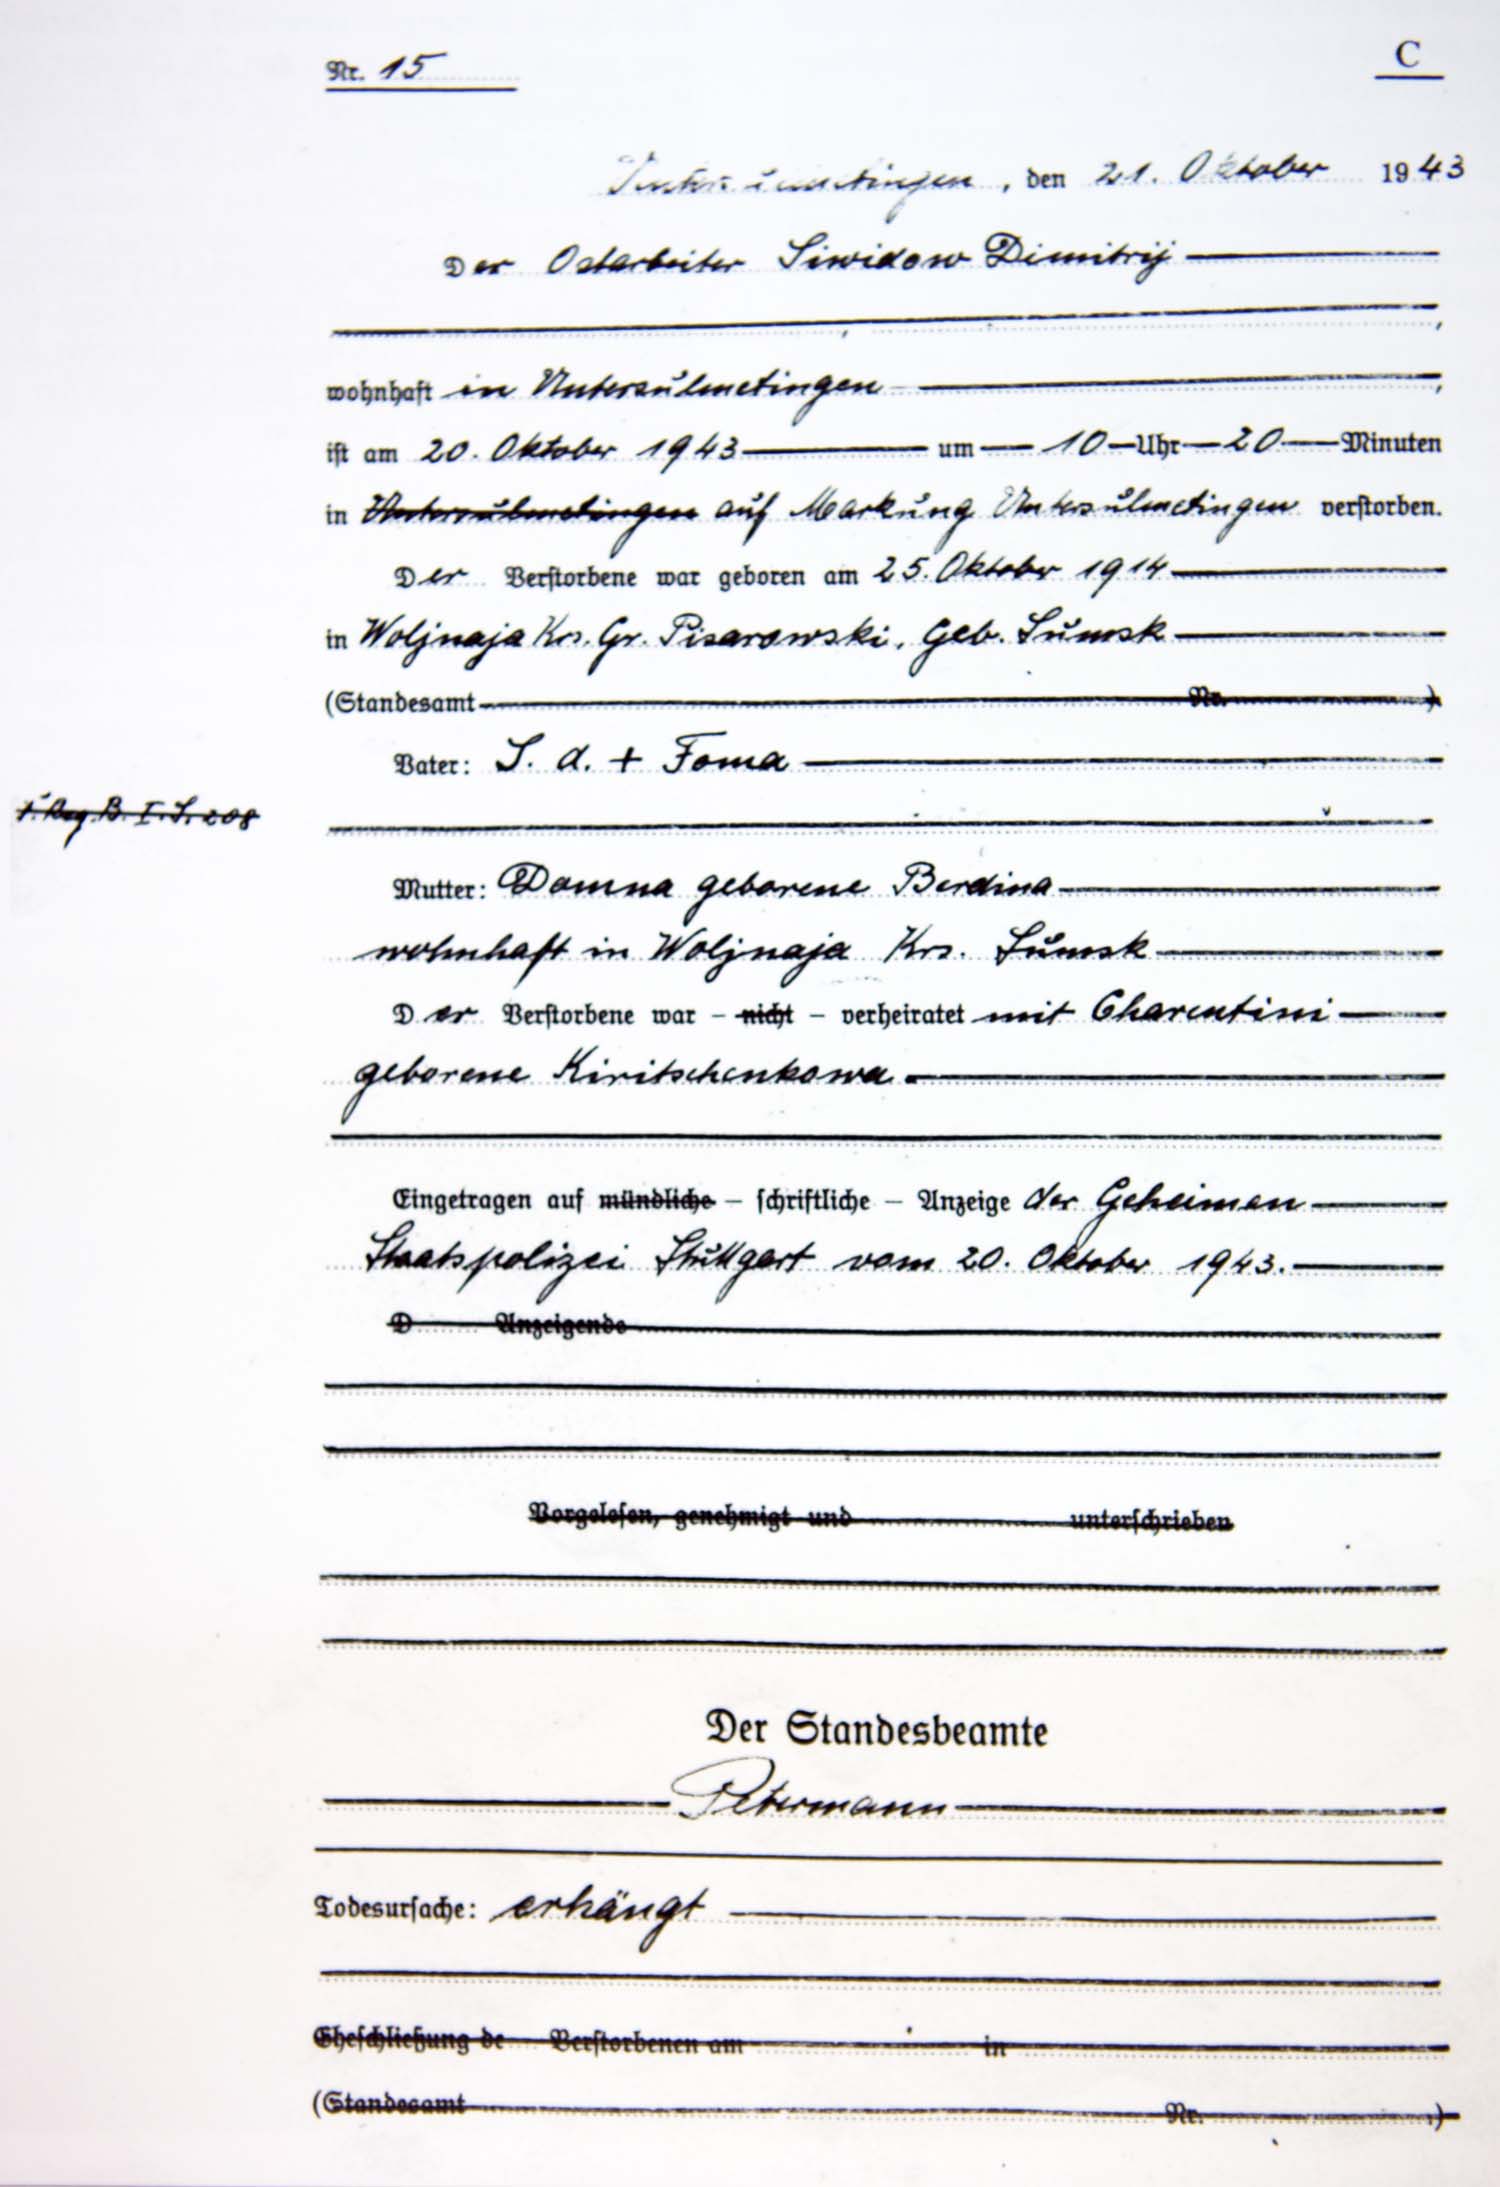 Nr. 15
C
Untersulmetingen, den 21. Oktober 1943
Der Ostarbeiter Siwidow Dimitrij
wohnhaft in Untersulmetingen
ist am 20. Oktober 1943 um 10 Uhr 20 Minuten
in Untersulmetingen auf Markung Untersulmetingen verstorben.
Der Verstorbene war geboren am 25. Oktober 1914
in Woljnaja Krs. Gr. Pisarowski, Geb. Sumsk
(Standesamt Nr. )
Vater: S. d. + Foma
B. I. S. 208
Mutter: Domna geborene Berdina
wohnhaft in Woljnaja Krs. Sumsk
Der Verstorbene war – nicht – verheiratet mit Charentini
geborene Kiritschenkowa.
Eingetragen auf mündliche – schriftliche – Anzeige der Geheimen
Staatspolizei Stuttgart vom 20. Oktober 1943.
D Anzeigende
Vorgelesen, genehmigt und unterschrieben
Der Standesbeamte
Petermann
Todesursache: erhängt
Eheschließung de Verstorbenen am in
(Standesamt Nr. )